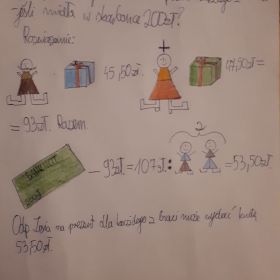 jeśli miała w skarbonce 200zł?
Rozwiązanie:
45,50zł. + 47,50zł=
= 93zł. Razem.
2
200zł
– 93zł = 107zł : = 53,50zł.
Odp. Zosia na prezent dla każdego z braci może wydać kwotę
53,50zł.